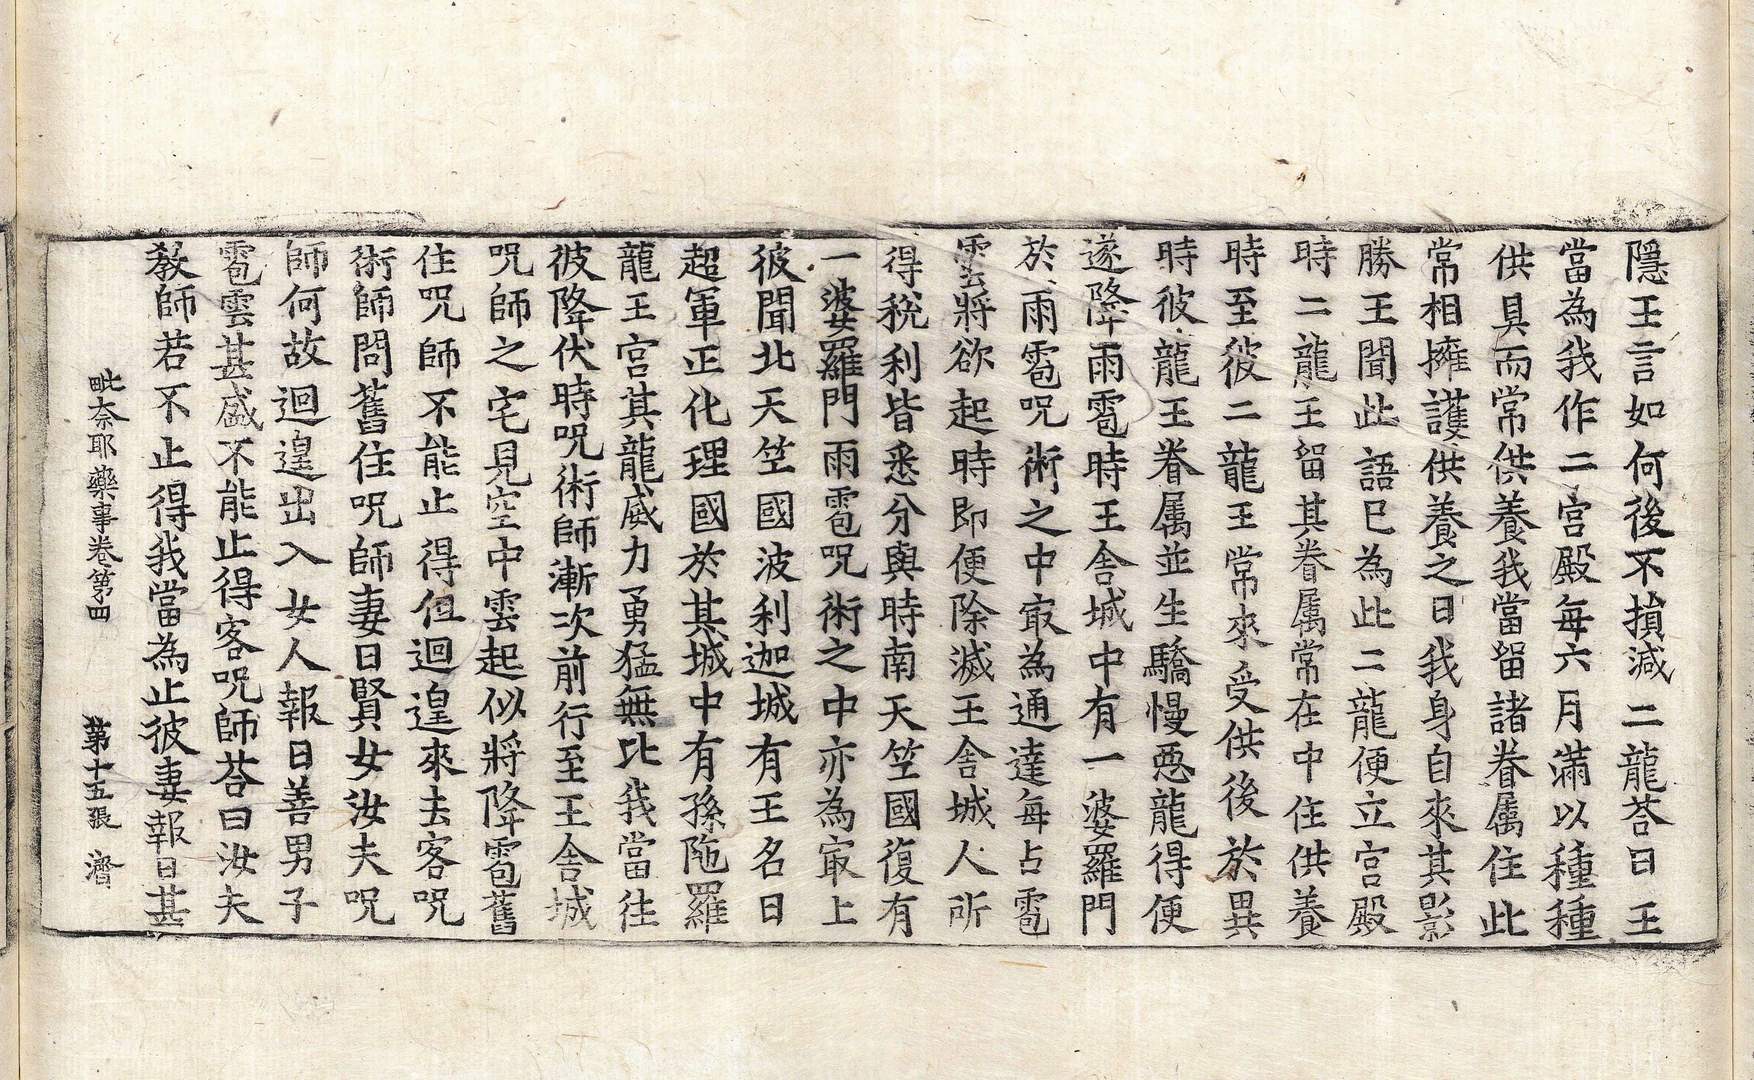 隱王言如何後不損減二龍荅曰王
當為我作二宮殿每六月滿以種種
供具而常供養我當留諸眷属住此
常相擁護供養之日我身自來其影
勝王聞此語已為此二龍便立宮殿
時二龍王留其眷属常在中住供養
時至彼二龍王常來受供後於異
時彼龍王眷属並生驕慢惡龍得便
遂降雨雹時王舍城中有一婆羅門
於雨雹呪術之中㝡為通達每占雹
雲將欲起時即便除滅王舍城人所
得稅利皆悉分與時南天竺國復有
一婆羅門雨雹呪術之中亦為㝡上
彼聞北天竺國波利迦城有王名曰
超軍正化理國於其城中有孫陁羅
龍王宮其龍威力勇猛無比我當往
彼降伏時呪術師漸次前行至王舍城
呪師之宅見空中雲起似將降雹舊
住呪師不能止得但迴遑來去客呪
術師問舊住呪師妻曰賢女汝夫呪
師何故迴遑出入女人報曰善男子
雹雲甚盛不能止得客呪師荅曰汝夫
教師若不止得我當為止彼妻報曰甚
毗奈耶藥事卷第四　第十五張　濟